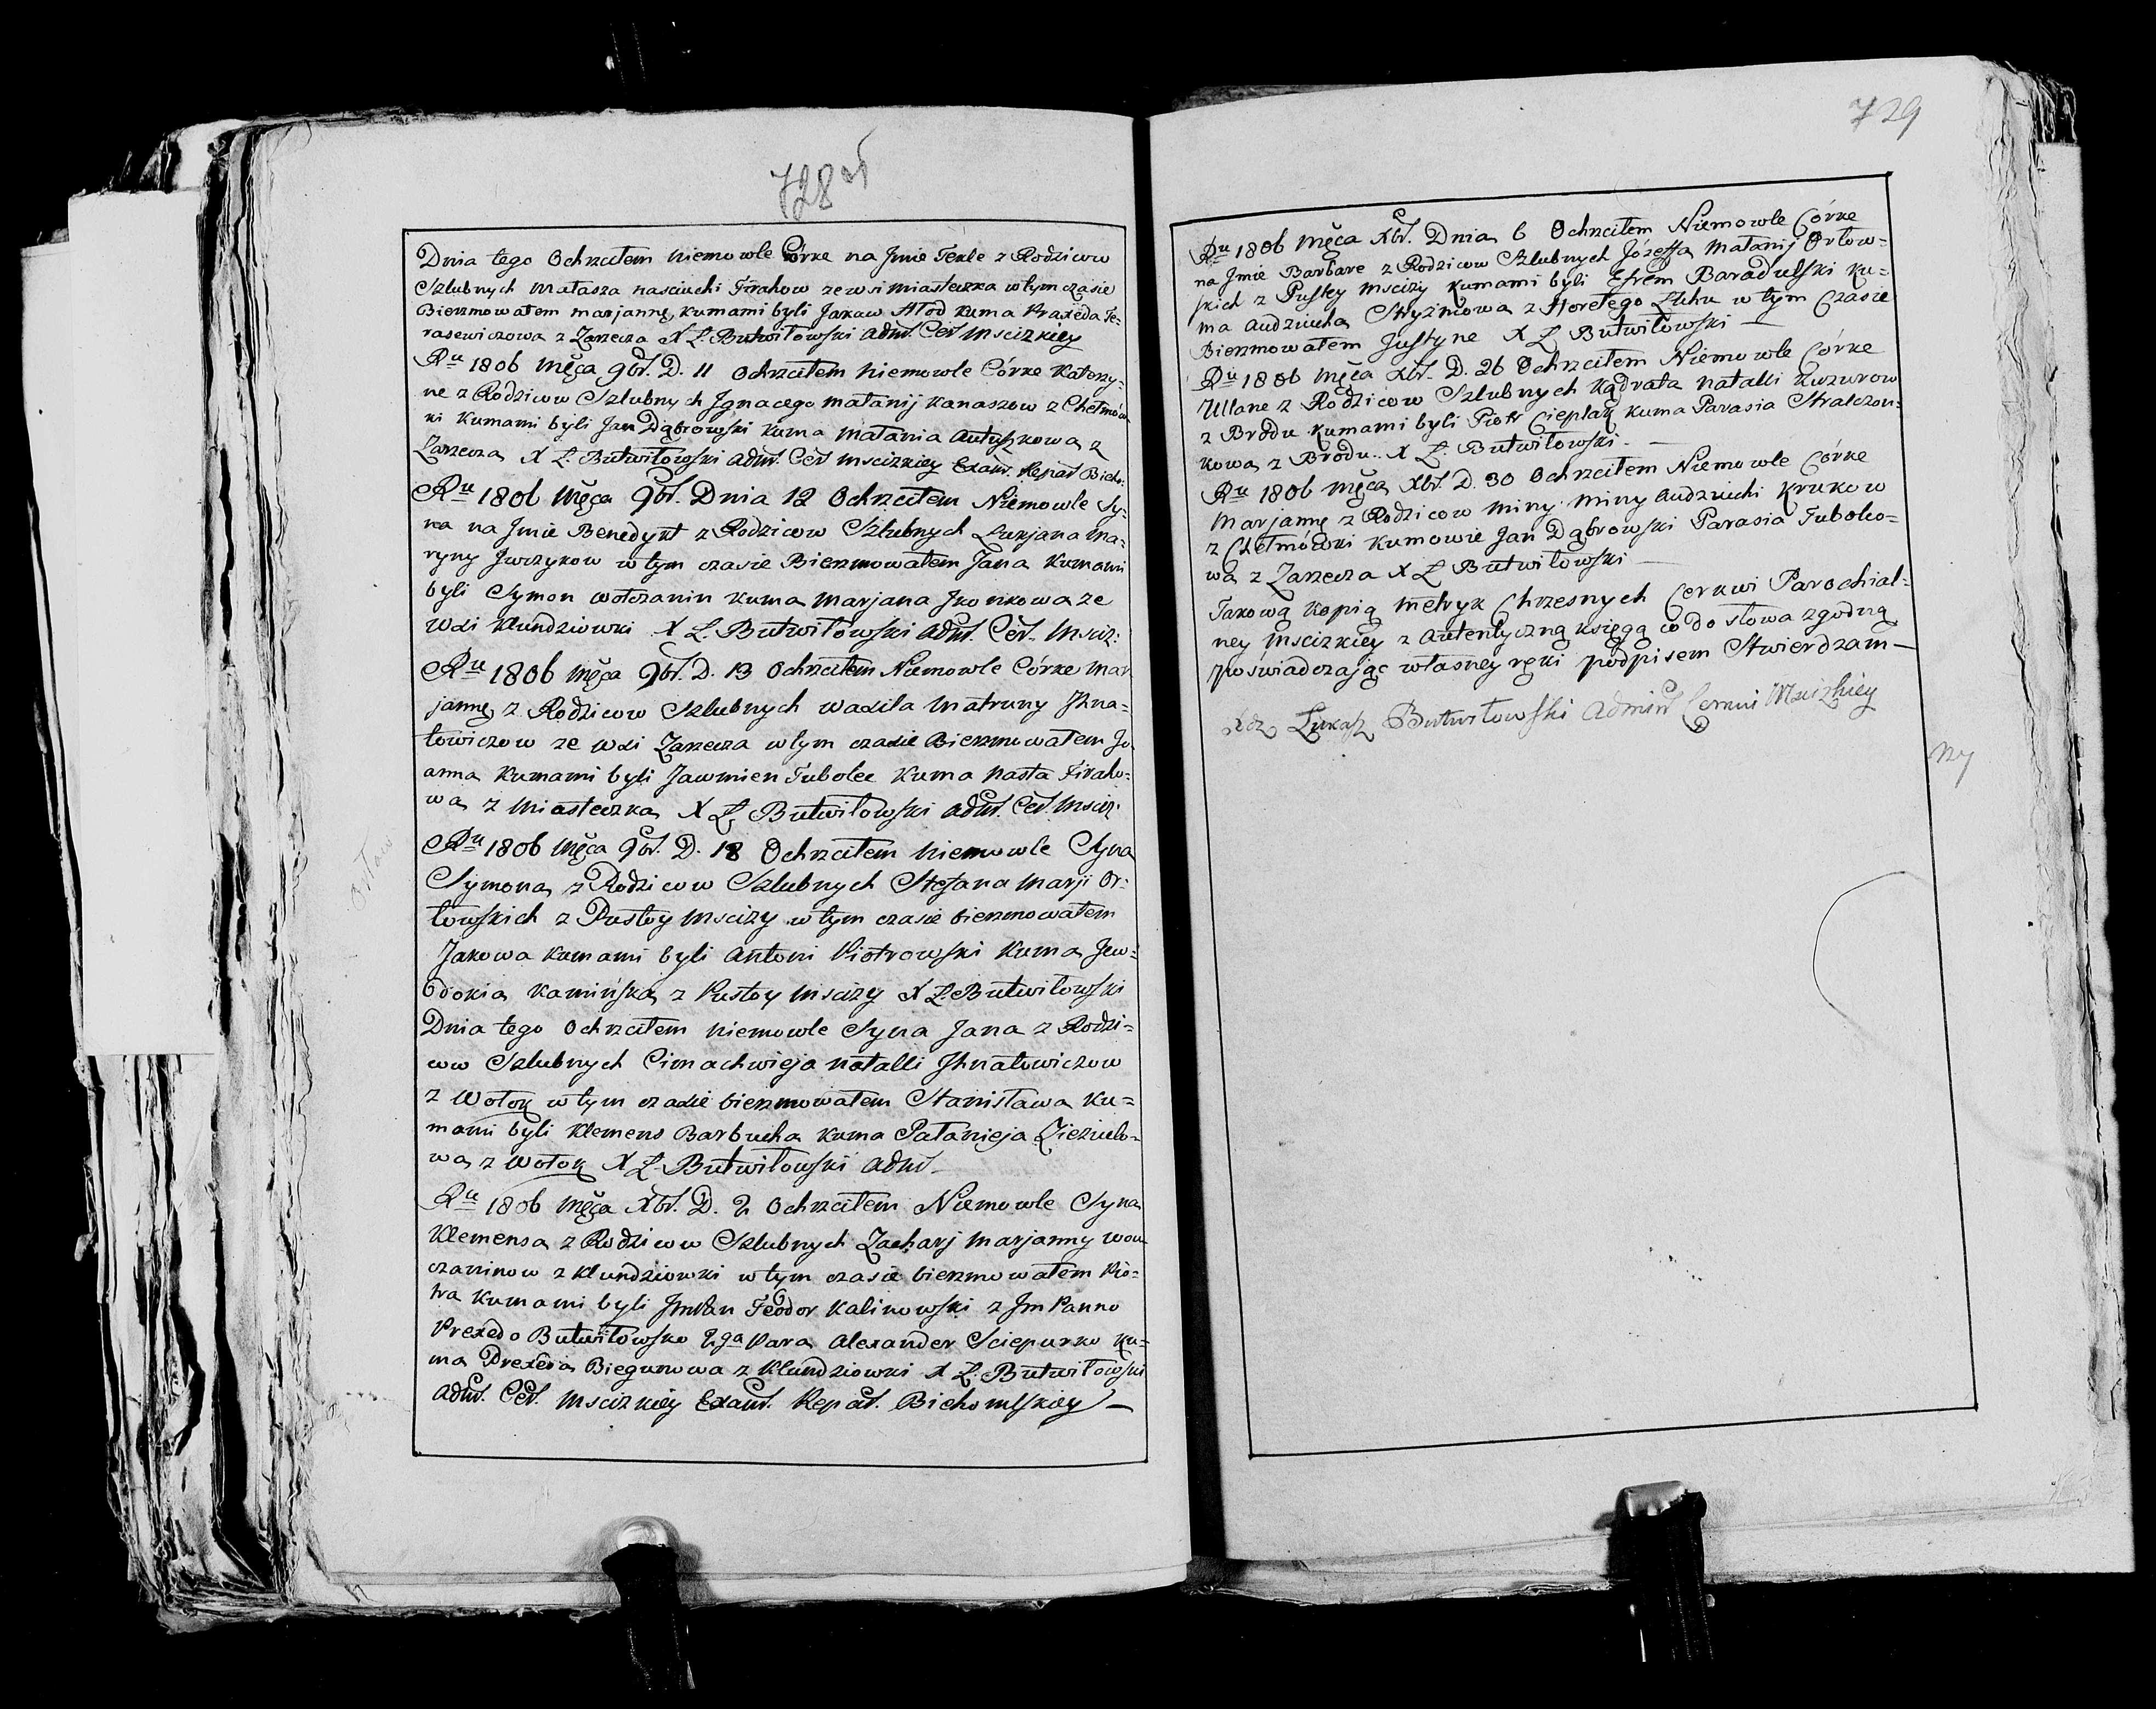 728 об
Dnia tego Ochrzciłem Niemowle Córke na Jmie Tekle z Rodzicow
Szlubnych Małasza nasciuchi Firahow ze wsi Miasteczka w tym czasie
Bierzmowałem marjannę kumami byli Jakaw Hłod kuma Praxeda Te-
rasewiczowa z Zarzecza X Ł. Butwiłowski adm. Cer. Mscizkiey
Ru 1806 Męca 9br. D. 11 Ochrzciłem Niemowle Córke Katerzy-
ne z Rodzicow Szlubnych Jgnacego matanij Kanaszow z Chełmów
ki Kumami byli Jan Dąbrowski kuma Matania Antuszkowa z
Zarzecza X Ł. Butwiłowski adm. Cer Mscizkiey Exam. Repar Bicho.
Ru 1806 Męca 9br. Dnia 12 Ochrzciłem Niemowle Sy-
na na Jmie Benedykt z Rodzicow Szlubnych Łukjana Ma-
ryny Jwczykow w tym czasie Bierzmowałem Jana kumami
byli Symon Wołczanin kuma Marjana Jkonkowa ze
Wsi Klundziowki X Ł. Butwiłowski adm. Cer. Msciz:
Ru 1806 Męca 9br. D. 13 Ochrzciłem Niemowle Córke Mar
jannę z Rodzicow Szlubnych Wasila Matruny Jhna-
towiczow ze Wsi Zarzecza w tym czasie Bierzmowałem Jo
anna Kumami byli Jawmien Tubolec kuma Nasta Firaho-
wa z Miasteczka X Ł Butwiłowski adm. Cer. Msciz:
Ru 1806 Męca 9br. D. 18 Ochrzciłem Niemowle Syna
Symona z Rodzicow Szlubnych Stefana Marji Or-
łowskich z Pustoy Mscizy w tym czasie bierzmowałem
Jakowa kumami byli Antoni Piotrowski Kuma Jew-
dokia Kamińska z Pustoy Mscizy X Ł. Butwiłowski
Dnia tego Ochrzciłem Niemowle Syna Jana z Rodzi-
cow Szlubnych Cimachwieja Natalli Jhnatowiczow
z Wołok w tym czasie bierzmowałem Stanisława ku-
mami byli Klemens Barbucha kuma Pałanieja Zieziulo-
wa z Wołok X Ł. Butwiłowski adm.
Ru 1806 Męca Xbr. D. 2 Ochrzciłem Niemowle Syna
Klemensa z Rodzicow Szlubnych Zacharj Marjanny Woł
czaninow z Klundziowki w tym czasie bierzmowałem Pio-
tra kumami byli JmPan Teodor Kalinowski z Jm Panno
Prexedo Butwiłowsko 2ga Para Alexander Sciepurko ku-
ma Prexeda Biegunowa z Klundziowki X Ł. Butwiłowski
adm. Cer. Mscizkiey Exam. Repar. Bichomskiey
729
Ru 1806 Męca Xbr. Dnia 6 Ochrzciłem Niemowle Córke
na Jmie Barbare z Rodzicow Szlubnych Józeffa Matanij Orłow-
skich z Pustey Mscizy kumami byli Efrem Baradulski ku-
ma Audziucha Stryżniowa z Horełego Łuhu w tym Czasie
Bierzmowałem Justyne X Ł Butwiłowski
Ru 1806 Męca Xbr. D. 26 Ochrzciłem Niemowle Córke
Ullane z Rodzicow Szlubnych Kądrata Natalli Kuzurow
z Brodu kumami byli Piotr Cieplak kuma Parasia Stralczon-
kowa z Brodu. X Ł. Butwiłowski.
Ru 1806 Męca Xbr. D. 30 Ochrzciłem Niemowle Córke
Marjannę z Rodzicow Miny Miny Audziuchi Krukow
z Chełmówki Kumowie Jan Dąbrowski Parasia Tubolco-
wa z Zarzecza X Ł Butwiłowski
Takową kopią Metryk Chrzesnych Cerkwi Parochial-
ney Mscizkiey z Autentyczną księgą co do słowa zgodną
poświadczając własney ręki podpisem Stwierdzam
Xdz Łukasz Butwiłowski Admin Cerkwi Mscizkiey